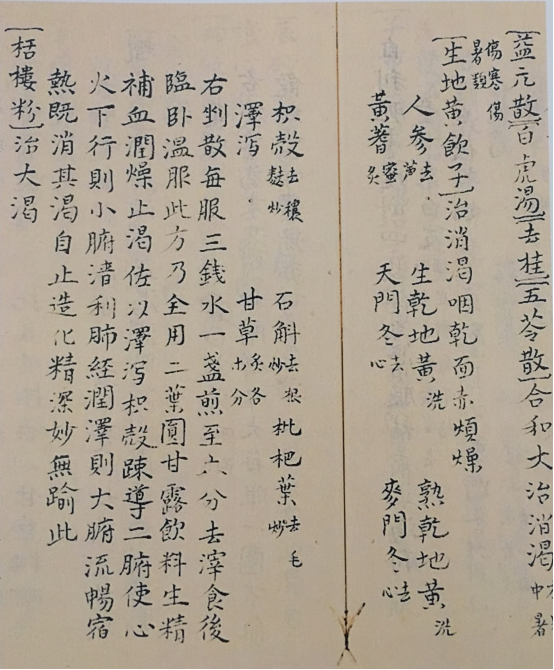 益元散百虎湯去桂五苓散合和大治消渴中暑
傷寒傷暑
生地黃飲子治消渴咽乾面赤煩燥
人參去芦 生乾地黃洗 熟乾地黃洗
黃蓍蜜炙 天門冬去心 麥門冬去心
枳殼去穰麩炒 石斛去根炒 枇杷葉去毛炒
澤瀉 甘草炙各 分
右剉散每服三錢水一盞煎至六分去滓食後
臨卧溫服此方乃全用二葉圓甘露飲料生精
補血潤燥止渴佐以澤瀉枳殼踈導二腑使心
火下行則小腑清利肺經潤澤則大腑流暢宿
熱既消其渴自止造化精深妙無踰此
栝樓粉治大渴